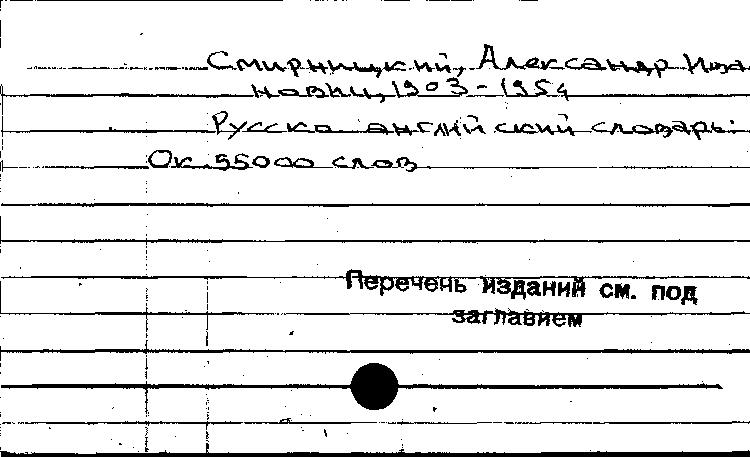 Смирницкий, Александр Ива
нович, 1903-1954
Русско английский словарь:
Ок. 55000 слов
Перечень изданий см. под
заглавием